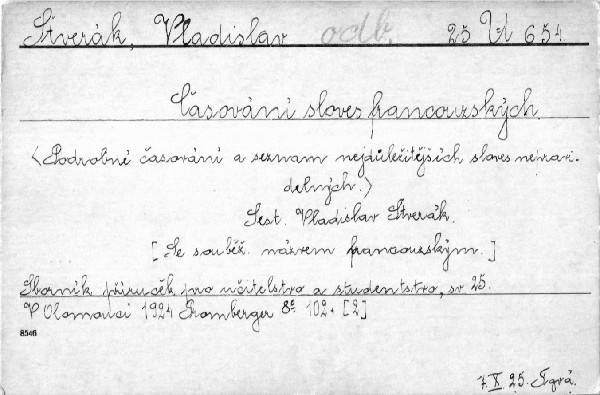 Štverák, Vladislav odb. 25 Vl 654
Časování sloves francouzských
<Podrobné časování a seznam nejdůležitějších sloves nepravi-
delných.>
Sest. Vladislav Štverák.
[Se souběž. názvem francouzským.]
Sborník příruček pro učitelstvo a studentstvo, sv. 25.
V Olomouci 1924 Promberger 8° 102+[2]
8546
7.X.25.